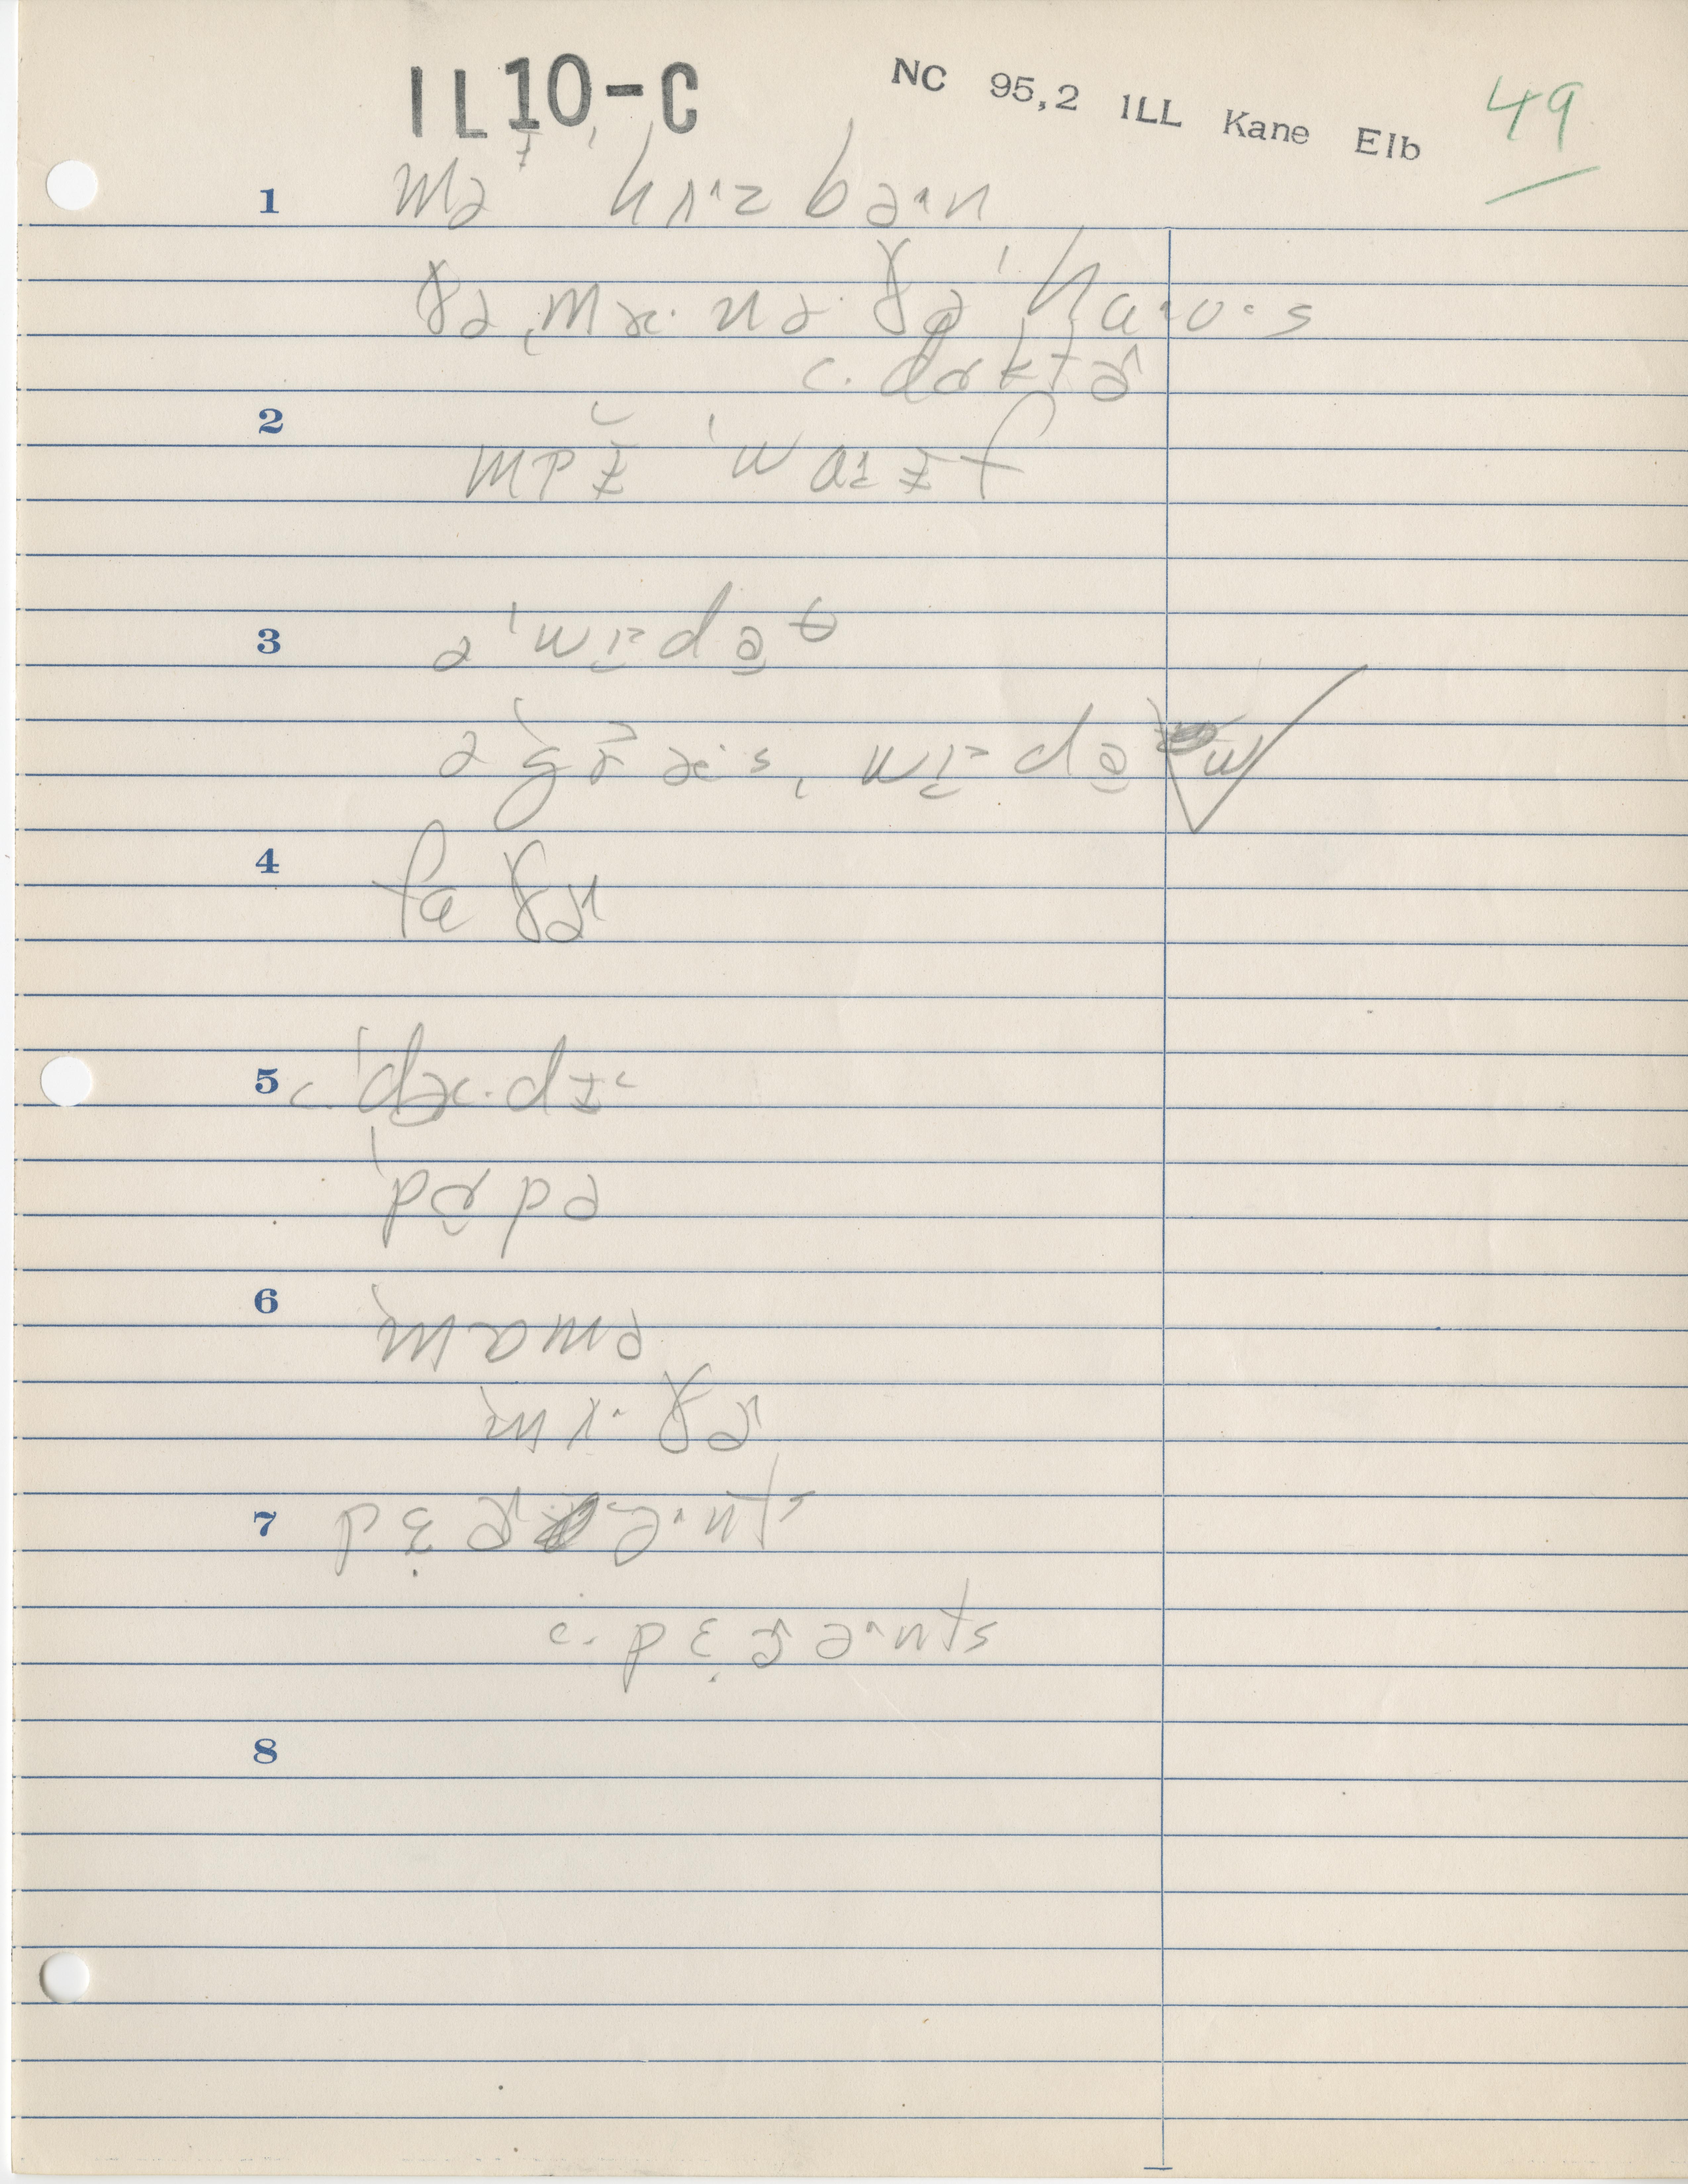 IL10-C
NC 95,2 ILL Kane Elb
49
1 mə ˈhʌ·zbə·n
ðə ˌmæ·nə·ðə ˈha·ʊ·s
c. dɑktɚ
2 ˈwaɪɪf
3 ə ˈwɪdə
ə ˈgræ·s ˌwɪdə w
4 fɑðɚ
5 c. ˈdæ·dɪ
ˈpɑpə
6 ˈmɑmə
ˈmʌ·ðɚ
7 pɛɚə·nts
c. pɛrə·nts
8